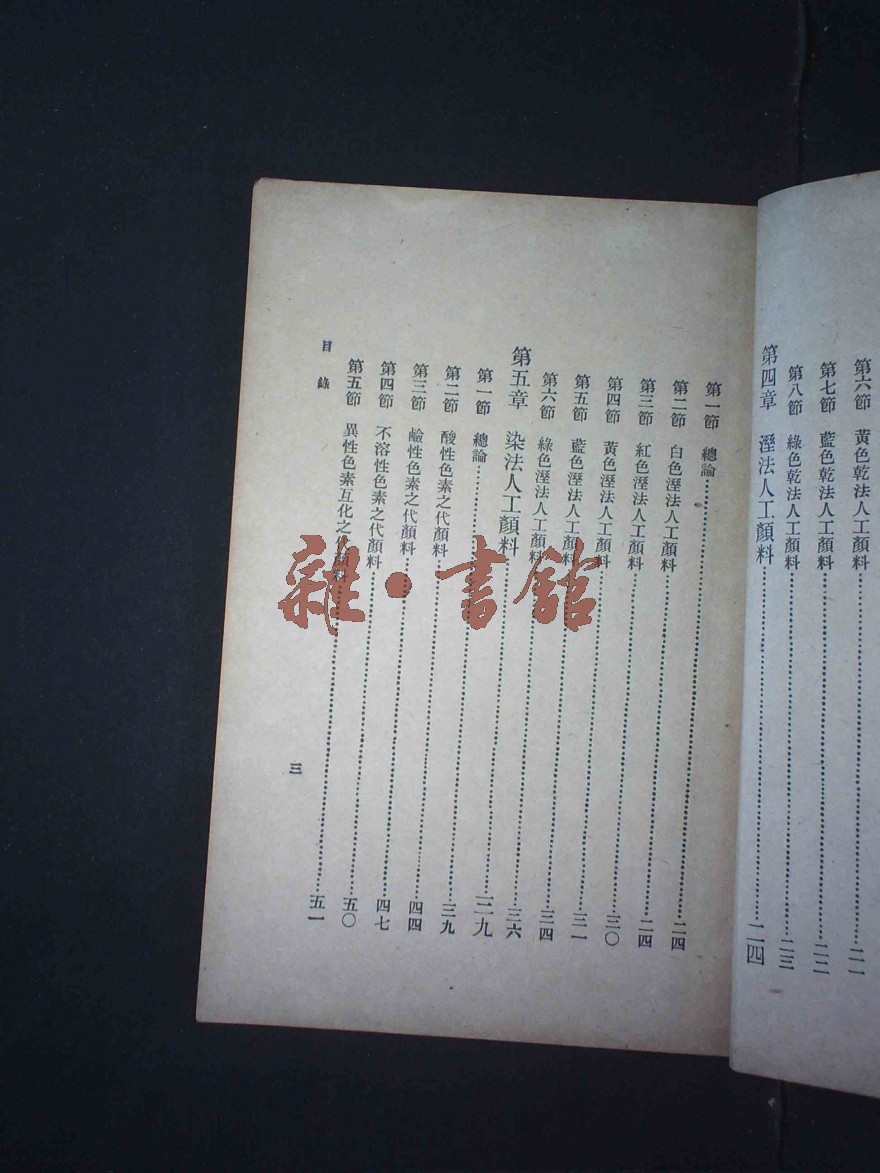 第六節　黃色乾法人工顏料……二一
第七節　藍色乾法人工顏料……二二
第八節　綠色乾法人工顏料……二三
第四章　溼法人工顏料……二四
第一節　總論……二四
第二節　白色溼法人工顏料……二四
第三節　紅色溼法人工顏料……三〇
第四節　黃色溼法人工顏料……三一
第五節　藍色溼法人工顏料……三四
第六節　綠色溼法人工顏料……三六
第五章　染法人工顏料……三九
第一節　總論……三九
第二節　酸性色素之代顏料……四四
第三節　鹼性色素之代顏料……四七
第四節　不溶性色素之代顏料……五〇
第五節　異性色素互化之代顏料……五一
目錄
三
雜·書館